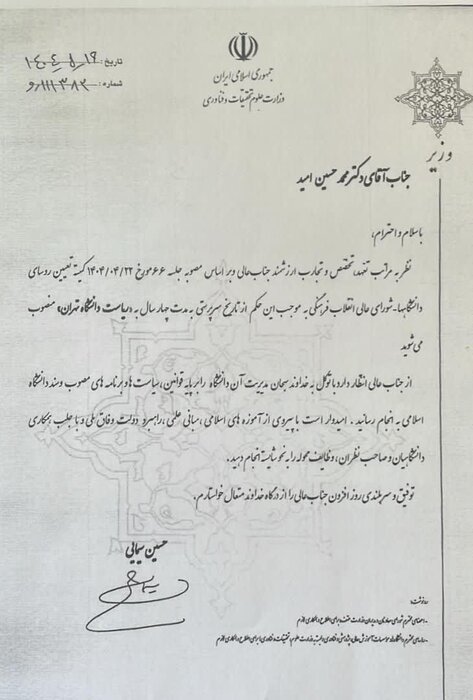 تاریخ: ۱۴۰۴,۵,۱۲
شماره: و/۱۱۱۳۸۲
جمهوری اسلامی ایران
وزارت علوم، تحقیقات و فناوری
وزیر
جناب آقای دکتر محمد حسین امید
با سلام و احترام،
نظر به مراتب تعهد، تخصص و تجارب ارزشمند جنابعالی و بر اساس مصوبه جلسه ۶۶ مورخ ۱۴۰۴/۰۴/۲۲ کمیته تعیین روسای
دانشگاهها- شورای عالی انقلاب فرهنگی به موجب این حکم از تاریخ سرپرستی به مدت چهار سال به «ریاست دانشگاه تهران» منصوب
می شوید
از جناب عالی انتظار دارد با توکل به خداوند سبحان مدیریت آن دانشگاه را بر پایه قوانین، سیاست ها و برنامه های مصوب و سند دانشگاه
اسلامی به انجام رسانید. امیدوار است با پیروی از آموزه های اسلامی، مبانی علمی، راهبرد دولت وفاق ملی و با جلب همکاری
دانشگاهیان و صاحب نظران، وظایف محوله را به نحو شایسته انجام دهید.
توفیق و سربلندی روز افزون جناب عالی را از درگاه خداوند متعال خواستارم.
حسین سیمایی
رونوشت: